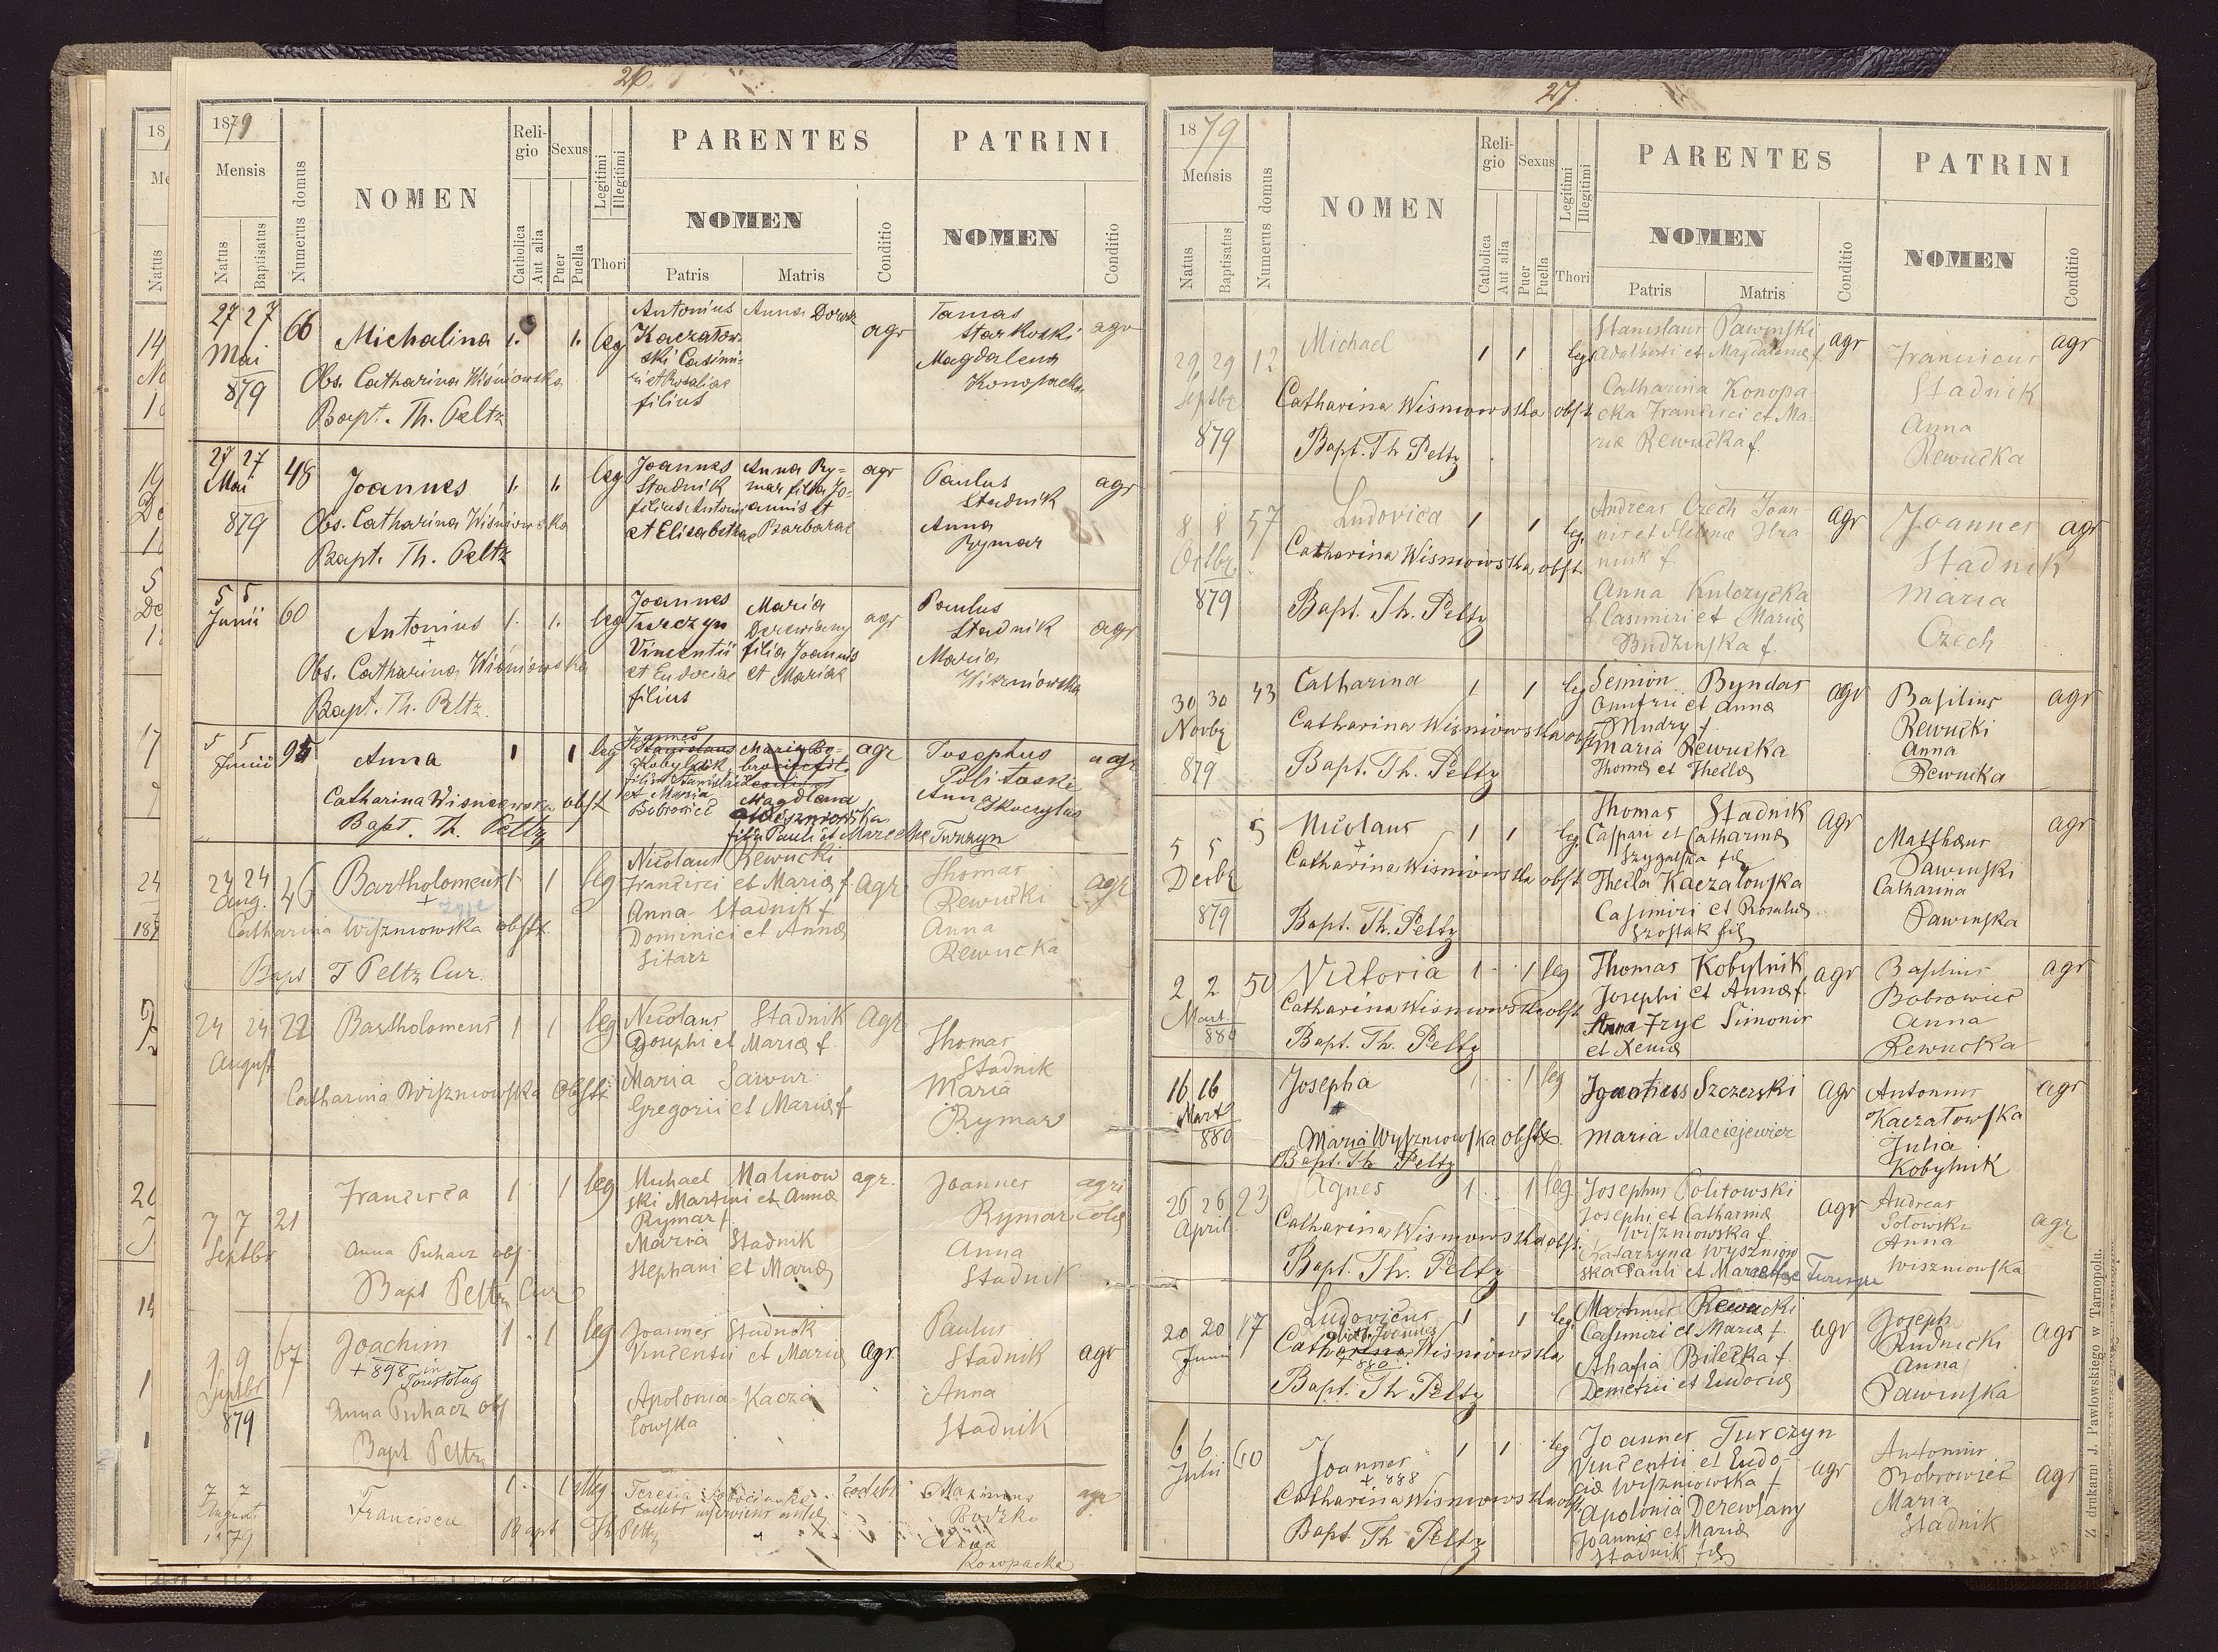 26.
1879
Mensis
Natus
Baptisatus
Numerus domus
NOMEN
Religio
Catholica
Aut alia
Sexus
Puer
Puella
Legitimi
Illegitimi
Thori
PARENTES
NOMEN
Patris
Matris
Conditio
PATRINI
NOMEN
Conditio
27 27 66 Michalina 1. 1. leg Antonius Anna agr Tamas agr
Mai Kaczatow- Starkoski
879 ski Casimi- Magdalena
Obs. Catharina Wiśniowska ri et Rosaliae Konopacka
Bapt. Th. Peltz filius
27 27 48 Joannes 1. 1. leg Joannes Anna Ry- agr Paulus agr
Mai Stadnik mar filia Jo- Stadnik
879 filius Antoni annis et Anna
Obs. Catharina Wiśniowska et Elisabethae Barbarae Rymar
Bapt. Th. Peltz
5 5 60 Antonius 1. 1. leg Joannes Maria agr Paulus agr
Junii Turczyn Derewiany Stadnik
Obs. Catharina Wiśniowska Vincentii filia Joannis Maria
et Eudociae et Mariae Wiszniowska
Bapt. Th. Peltz. filius
5 5 95 Anna 1 1 leg Joannes agr Josephus agr
Junii Stanislaus Maria Bo- Politoski
Kobylnik browic fil. Anna
filius Stanislai Skoczylas
et Maria
Bobrowicz Magdlena
Catharina Wisniewska obst Wiszniowska
Bapt. Th. Peltz filia Pauli et Marcellae Turczyn
24 24 46 Bartholomeus 1 1 leg Nicolaus Rewucki agr Thomas agr
Aug. żyje Francisci et Mariæ f. Rewucki
Catharina Wiszniowska obstx. Anna Stadnik f. Anna
Dominici et Annæ Rewucka
Bapt T Peltz Cur. Sitarz
24 24 22 Bartholomeus 1 1 leg Nicolaus Stadnik Agr Thomas
August Josephi et Mariæ f. Stadnik
Catharina Wiszniowska Obstx Maria Sawur Maria
Gregorii et Mariæ f Rymar
7 7 21 Francisca 1 1 leg Michael Malinow agr. Joannes agri
Septbr ski Martini et Annæ Rymar colæ
Rymar f. Anna
Anna Puhacz obs. Maria Stadnik Stadnik
Bapt Peltz Cur Stephani et Mariæ
9 9 67 Joachim 1 1 leg Joannes Stadnik agr Paulus agr
Septbr + 898 in Toustoług Vincentii et Mariæ Stadnik
879 Anna Puhacz obs Apolonia Kacza Anna
Bapt Peltz towska Stadnik
7 7 Francisca 1. 1 Illeg Teresia Maximus agr
August Bapt Th Peltz Bodzko
1879 Anna
Konopacka
27.
1879
Mensis
Natus
Baptisatus
Numerus domus
NOMEN
Religio
Catholica
Aut alia
Sexus
Puer
Puella
Legitimi
Illegitimi
Thori
PARENTES
NOMEN
Patris
Matris
Conditio
PATRINI
NOMEN
Conditio
29 29 12 Michael 1 1 leg Stanislaus Pawinski agr Franciscus agr
Septbr Adalberti et Magdalenæ f. Stadnik
879 Catharina Wisniowska obst. Catharina Konopa- Anna
cka Francisci et Ma- Rewucka
Bapt. Th Peltz riæ Rewucka f.
8 8 57 Ludovica 1 1 leg. Andreas Czech Joan- agr Joannes agr
Octbr nis et Helenæ Hra Stadnik
879 Catharina Wisniowska obst niuk f. Maria
Bapt. Th. Peltz Anna Kulczycka Czech
f. Casimiri et Mariæ
Budzinska f.
30 30 43 Catharina 1 1 leg Semion Byndas agr Basilius agr
Novbr Onufrii et Annæ Rewucki
879 Catharina Wisniowska obst Mudry f. Anna
Maria Rewucka Rewucka
Bapt. Th. Peltz Thomæ et Theclæ
5 5 5 Nicolaus 1 1 leg. Thomas Stadnik agr Matthæus agr
Decbr Caspari et Catharinæ Pawinski
879 Catharina Wisniowska obst. Szygalska fil Catharina
Thecla Kaczatowska Pawinska
Bapt. Th. Peltz Casimiri et Rosaliæ
Szostak fil
2 2 50 Victoria 1 1 leg Thomas Kobylnik agr Basilius agr
Mart. Josephi et Annæ f. Bobrowicz
880 Catharina Wisniowska obst. Anna Fryc Simonis Anna
Bapt. Th. Peltz et Xeniæ Rewucka
16 16 Josepha 1 leg Ignatius Szczerski agr Antonius agr
Mart Kaczatowska
880 Maria Wyszniowska obstx. Maria Maciejewicz Julia
Bapt. Th Peltz Kobylnik
26 26 23 Agnes 1. 1 leg. Josephus Politowski agr Andreas agr
April. Josephi et Catharinæ Sotowski
Catharina Wisniowska obst. Wiszniowska f. Anna
Katarzyna Wyszniow Wiszniowska
Bapt. Th. Peltz ska Pauli et Marcellae Turczyn
20 20 17 Ludovicus 1 1 leg. Martinus Rewucki agr Joseph agr
Junii Casimiri et Mariæ f. Rudnicki
Catharina Wisniowska Ahafia Bilecka f. Anna
Bapt. Th Peltz Demetrii et Eudociæ Pawinska
6 6 60 Joannes 1 1 leg Joannes Turczyn agr Antonius agr
Julii + 888 Vincentii et Eudo- Bobrowicz
Catharina Wisniowska obst. ciæ Wiszniowska f. Maria
Apolonia Derewlany Stadnik
Bapt Th Peltz Joannis et Mariæ
Stadnik fil
Z drukarni J. Pawłowskiego w Tarnopolu.